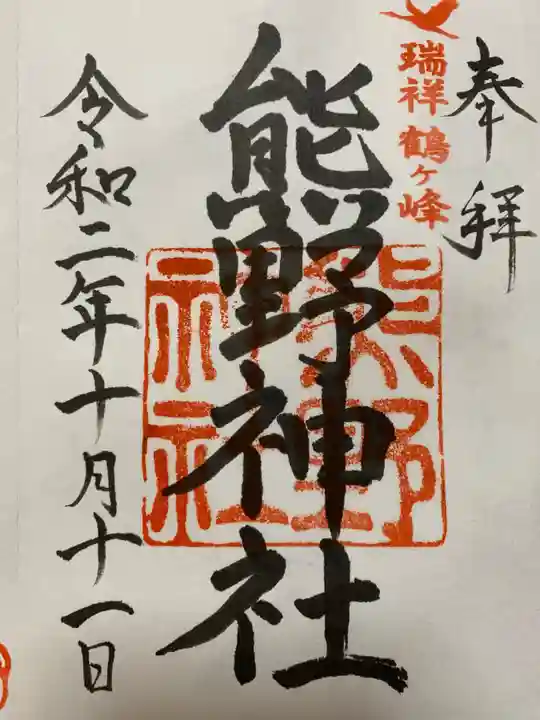 奉拝
瑞祥鶴ヶ峰
熊野神社
熊野神社
令和二年十月十一日